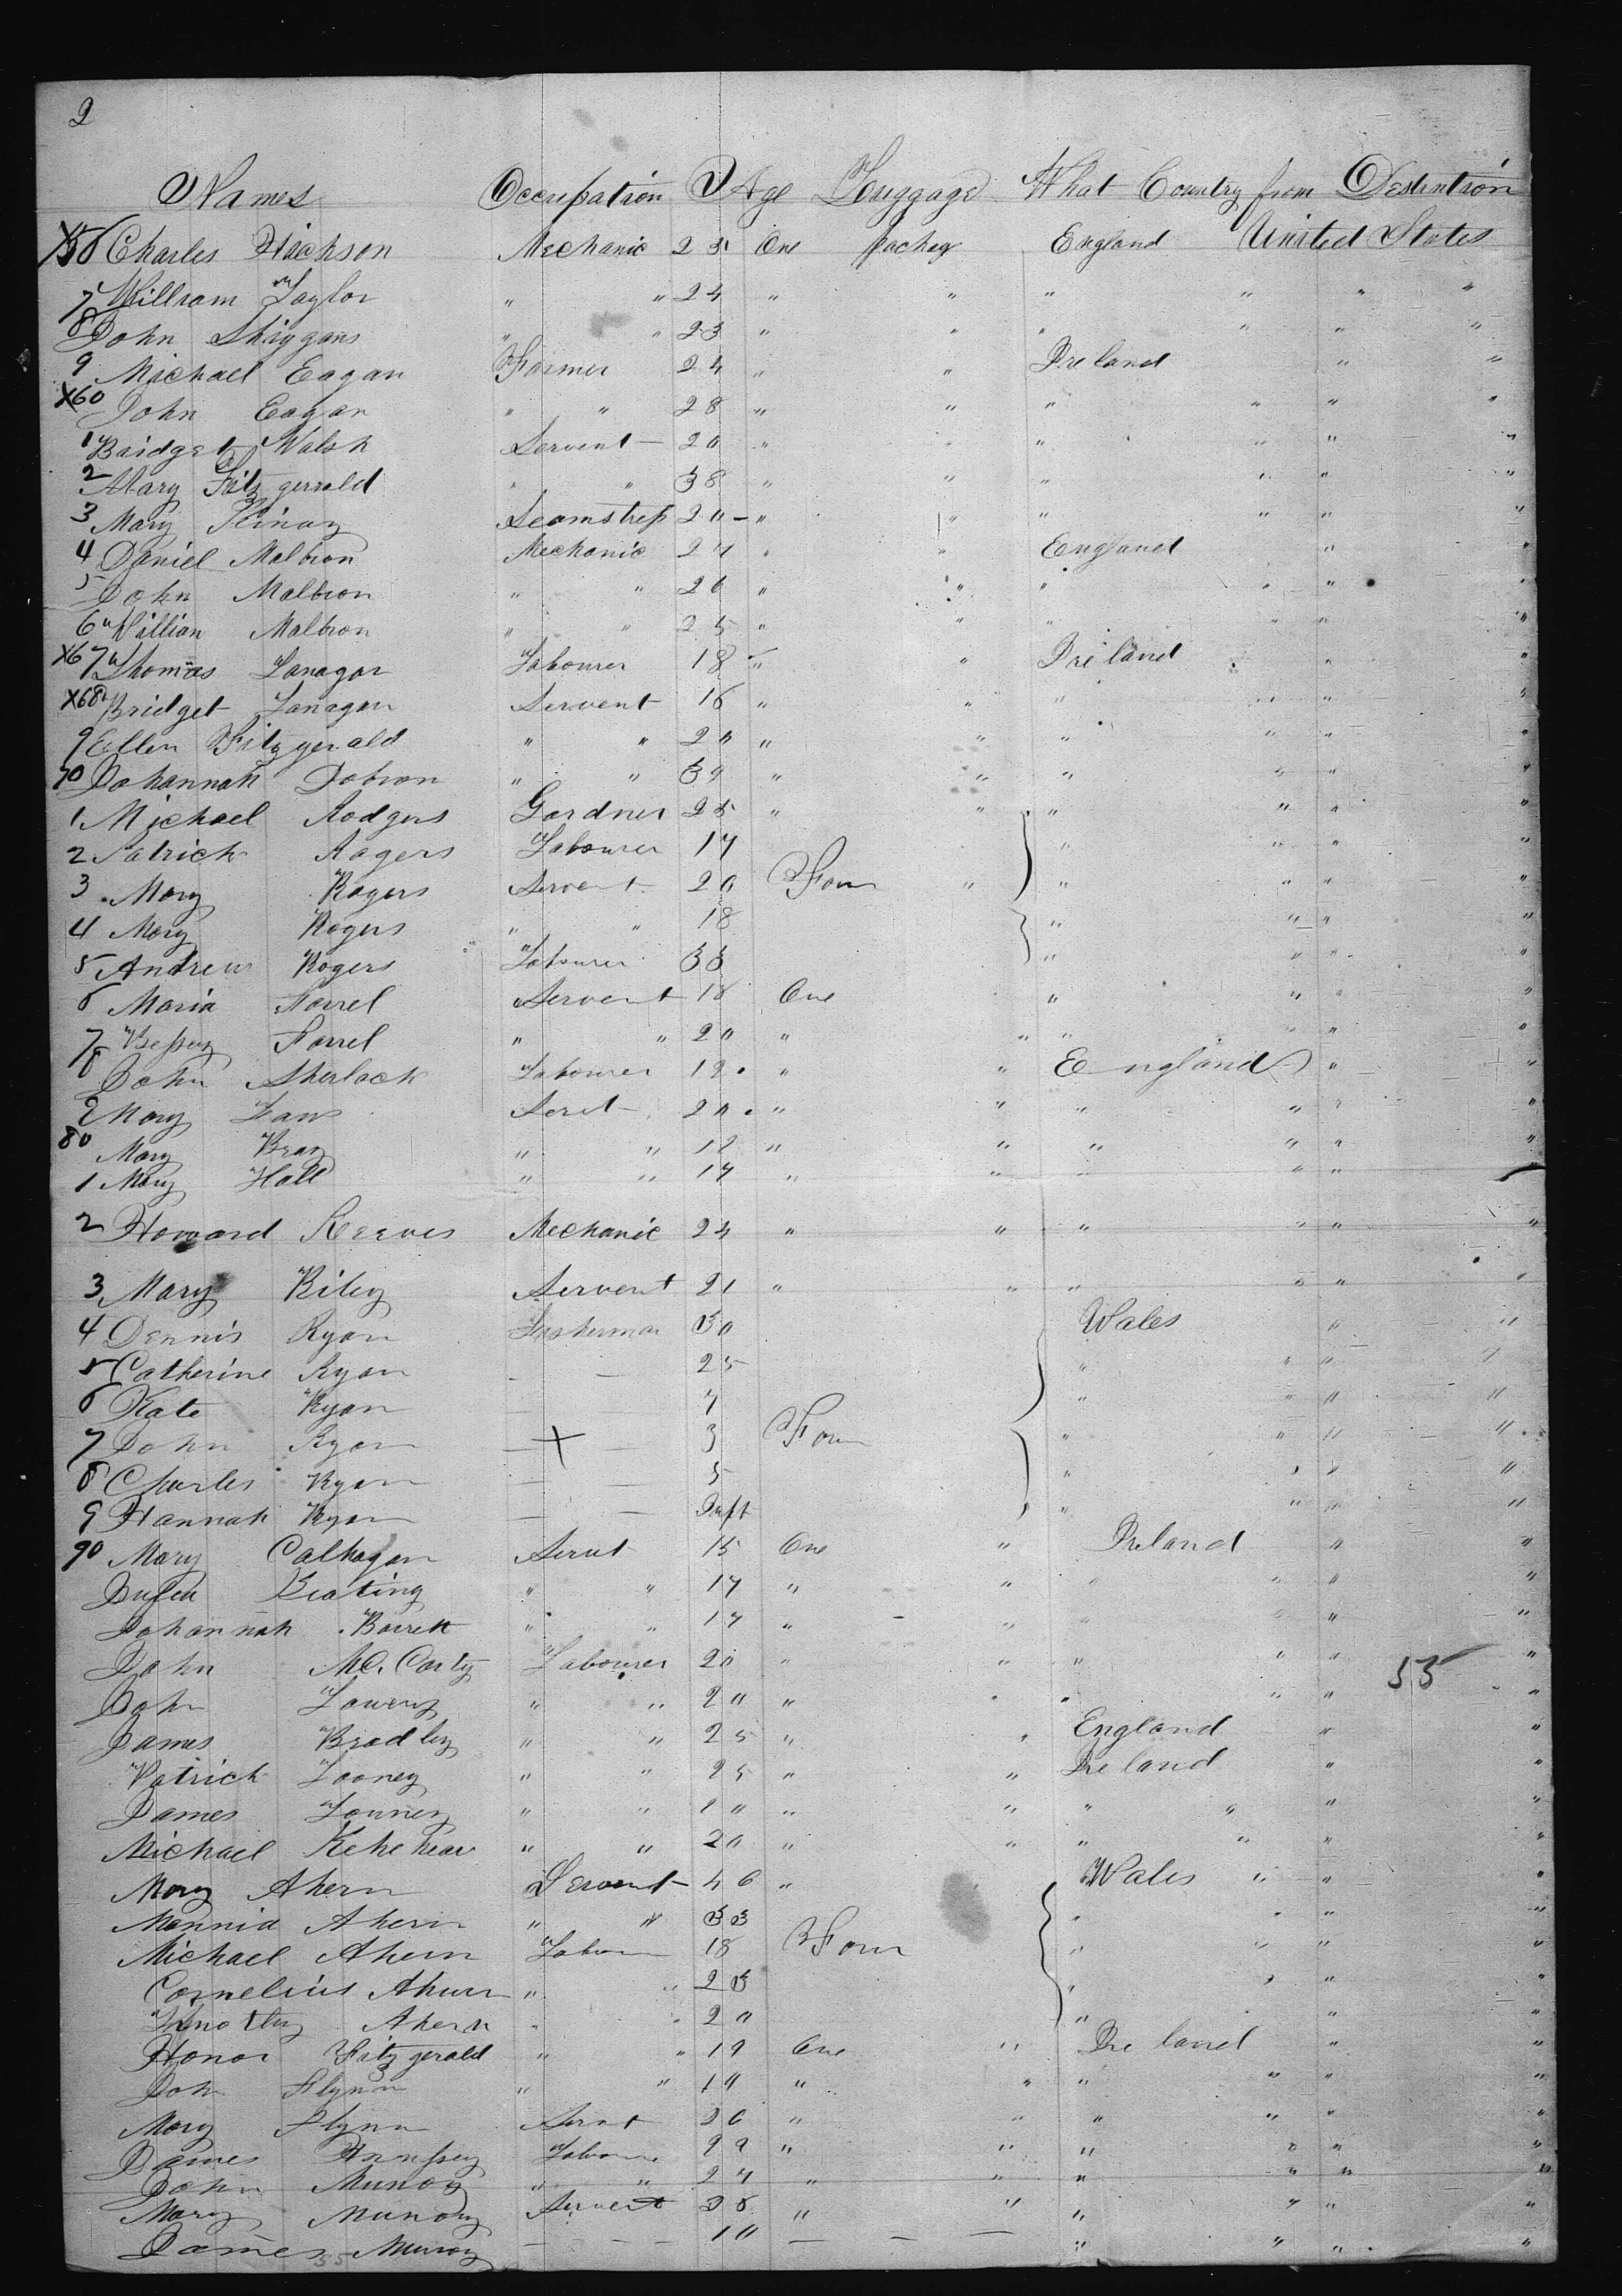 2
Names Occupation Age Luggage What Country from Destintion
X56 Charles Hickson Mechanic 25 One Package England United States
7 William Taylor " " 24 " " " " " "
8 John " " 23 " " " " " "
9 Michael Eagan Farmer 24 " " Ireland " "
X60 John Eagan " " 28 " " " " " "
1 Bridget Walsh Servent 20 " " " " " "
2 Mary Fitzgerrald " " 38 " " " " " "
3 Mary Seamstress 20 " " " " " "
4 Daniel Malbron Mechanic 27 " " England " "
5 John Malbron " " 26 " " " " " "
6 William Malbron " " 25 " " " " " "
X67 Thomas Lanagar Labourer 18 " " Ireland " "
X68 Bridget Lanagan Servent 16 " " " " " "
9 Ellen Fitzgerald " " 20 " " " " " "
70 Johannah Dobron " " 39 " " " " " "
1 Michael Rodgers Gardner 25 " " " " " "
2 Patrick Rogers Labourer 17 " " " "
3 Mary Rogers Servent 20 Four " " " " "
4 Mary Rogers " " 18 " " " "
5 Andrew Rogers Labourer 33 " " " "
6 Maria Farrel Servent 18 One " " " "
7 Bessey Farrel " " 20 " " " " " "
8 John Sherlock Labourer 19 " " England " "
9 Mary Servt 20 " " " " " "
80 Mary Bray " " 18 " " " " " "
1 Mary Hall " " 17 " " " " " "
2 Howard Reeves Mechanic 24 " " " " " "
3 Mary Riley Servent 21 " " " " " "
4 Dennis Ryan Fisherman 30 Wales " "
5 Catherine Ryan - - 25 " " " "
6 Kate Ryan 7 " " " "
7 John Ryan - X - 3 Four " " " "
8 Charles Ryan - - 5 " " " "
9 Hannah Ryan - - Inft " " " "
90 Mary Calhagan Servt 15 One " Ireland " "
Keating " " 17 " " " " " "
Johannah Barrett " " 17 " " " " " "
John Mc. Carty Labourer 20 " " " " " "
55
John Lowery " " 20 " " " " " "
James Bradley " " 25 " " England " "
Patrick Looney " " 25 " " Ireland " "
James " " 20 " " " " " "
Michael " " 20 " " " " " "
Mary Ahern Servent 46 " Wales " " "
Ahern " " 33 " " " "
Michael Ahern Labour 18 Four " " " "
Cornelius Ahern " " 23 " " " "
Timothy Ahern " " 20 " " "
Honor Fitzgerald " " 19 One " Ireland " "
John Flynn " " 19 " " " " " "
Mary Flynn Servt 26 " " " " " "
James Labourer 22 " " " " " "
John Munoy " " 27 " " " " " "
Mary Munoy Servent 36 " " " " "
James Munoy - - - 10 - - - " " " "
55